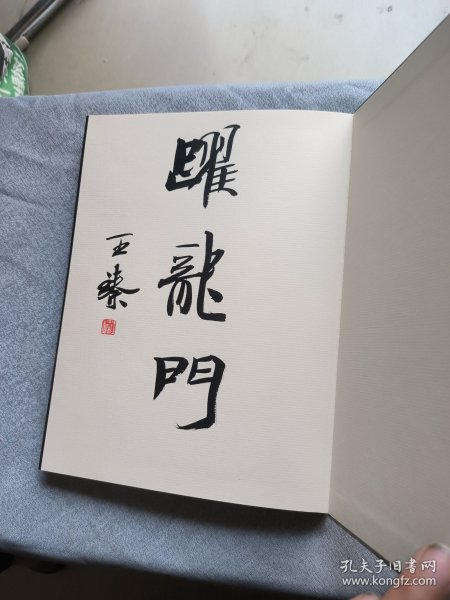 躍龍門
王臻
孔夫子旧书网
www.kongfz.com